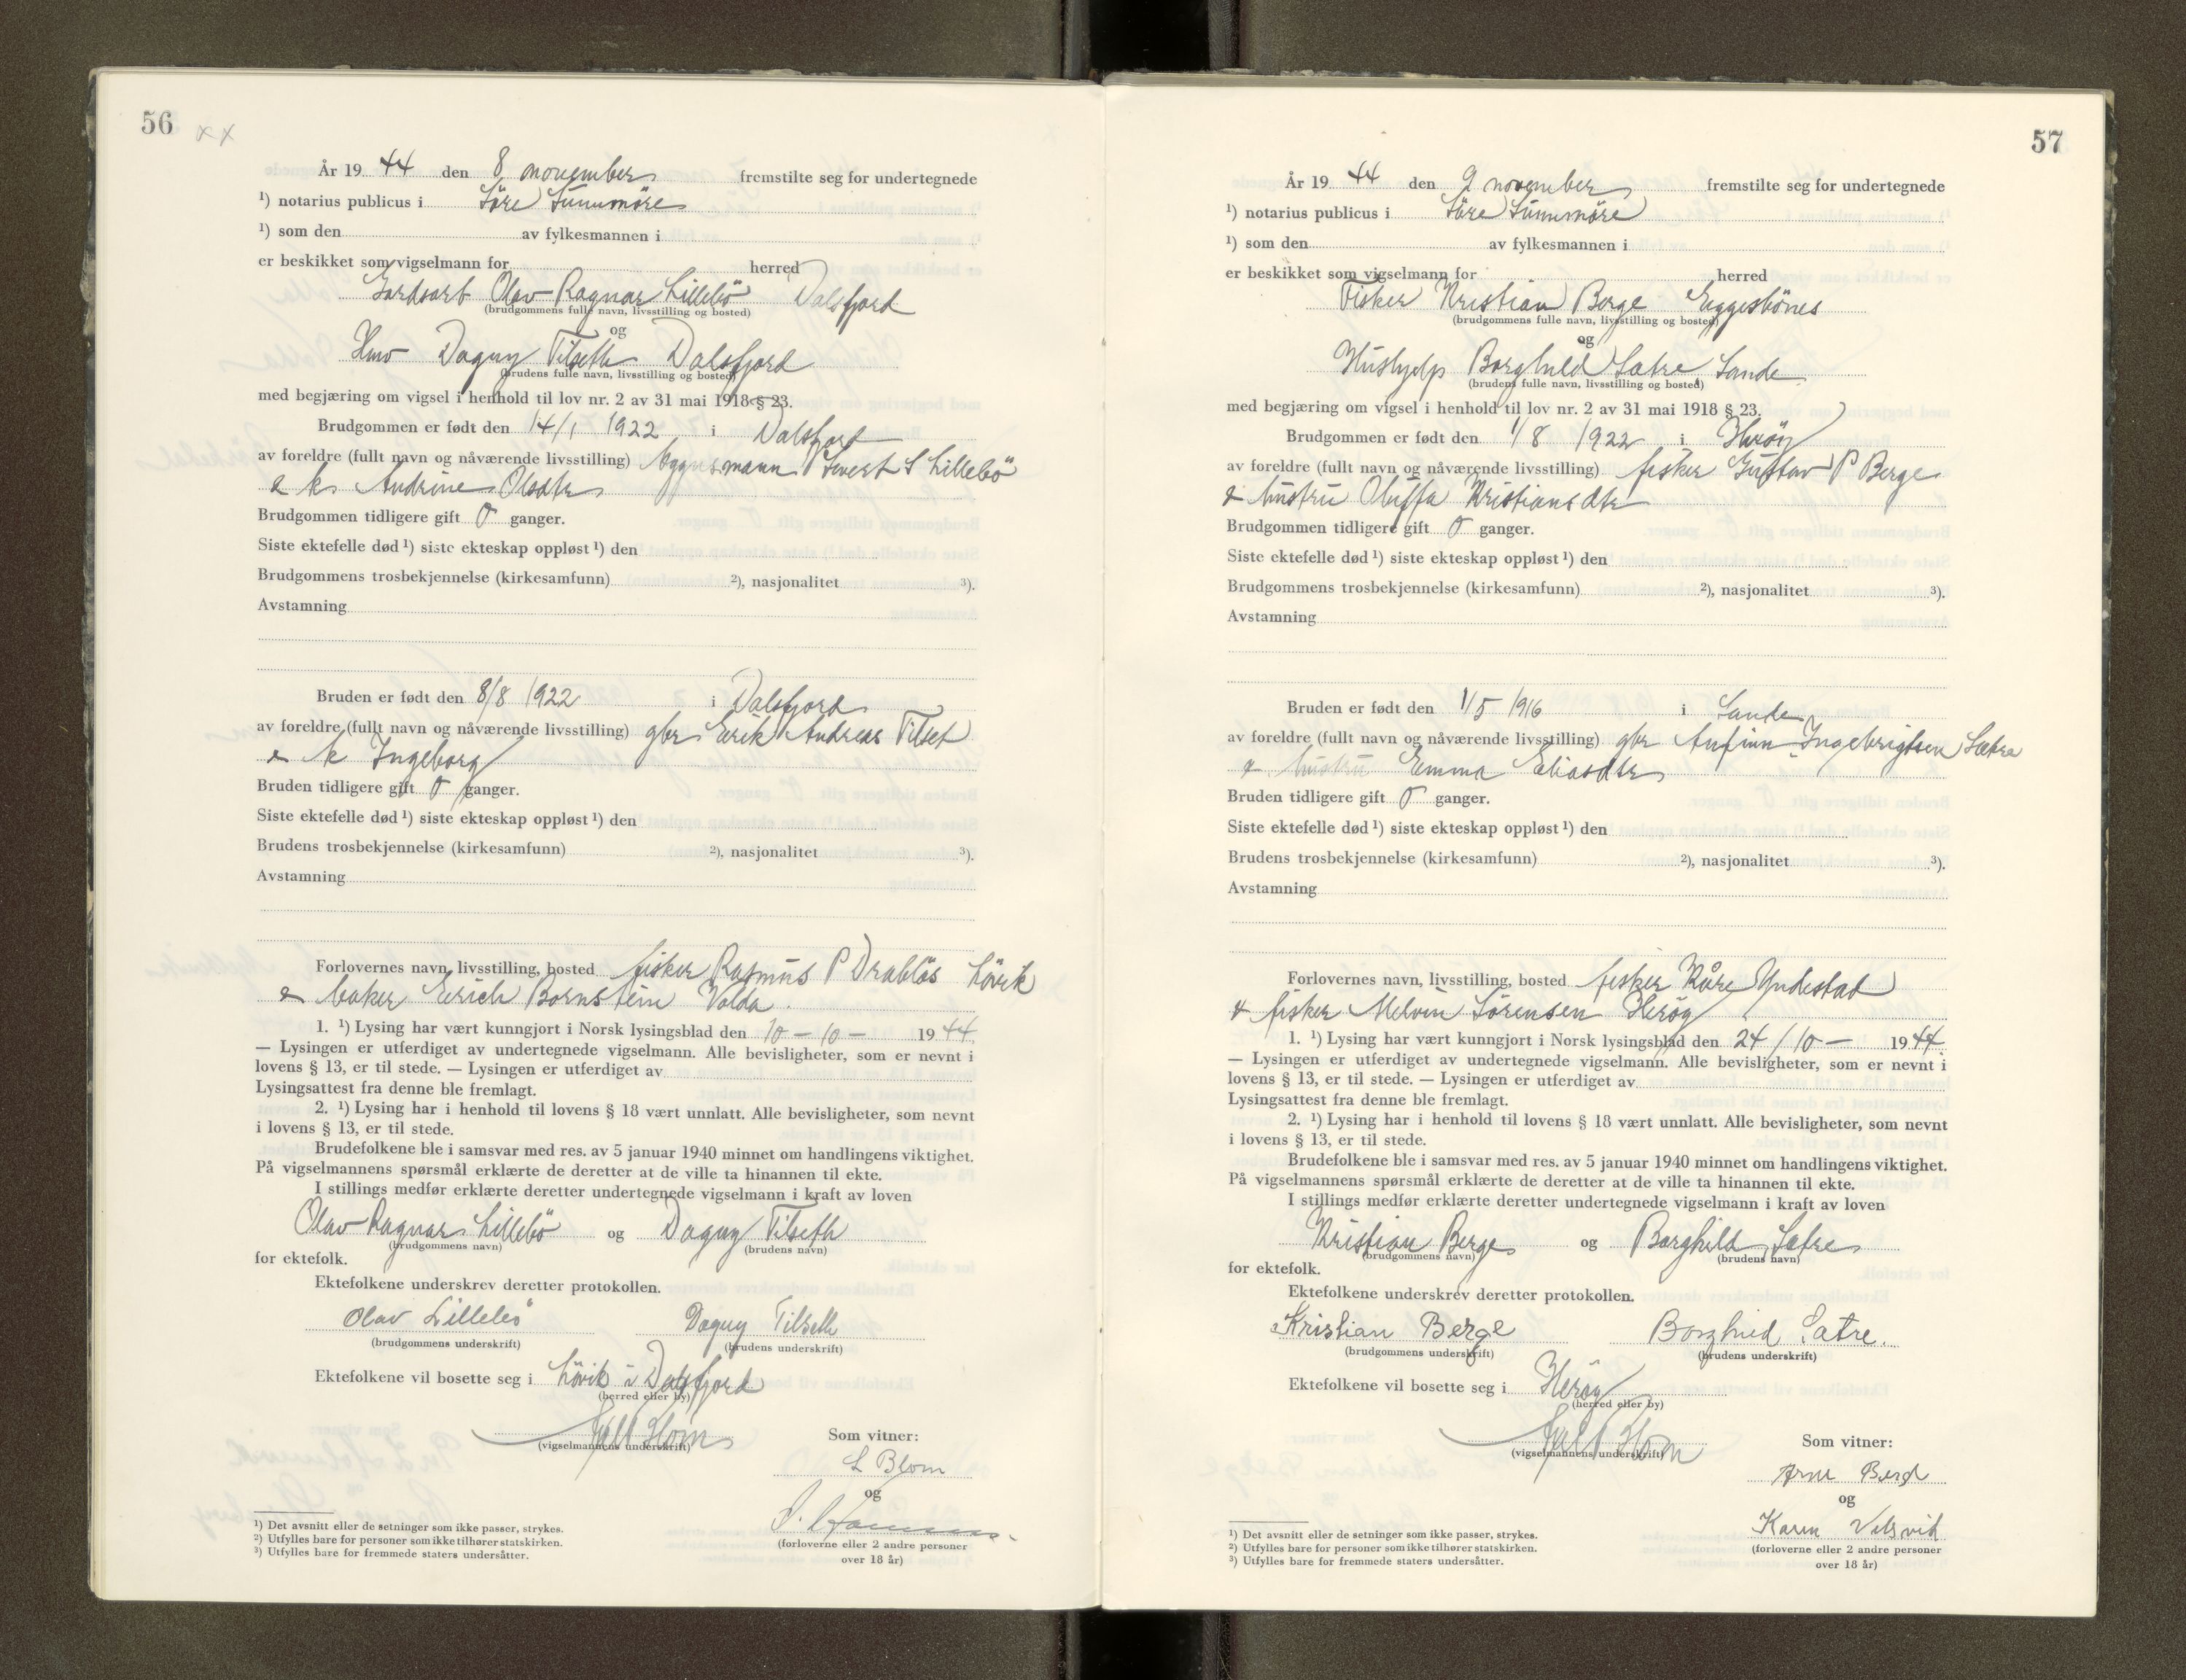 56 xx
År 19 44 den 8 november fremstilte seg for undertegnede
¹) notarius publicus i Söre Sunnmöre
¹) som den av fylkesmannen i
er beskikket som vigselmann for herred
Gardsarb Olav Ragnar Lillebö Dalsfjord
(brudgommens fulle navn, livsstilling og bosted)
og
Dagny Tilseth Dalsfjord
(brudens fulle navn, livsstilling og bosted)
med begjæring om vigsel i henhold til lov nr. 2 av 31 mai 1918 § 23.
Brudgommen er født den 14/1 1922 i Dalsfjord
av foreldre (fullt navn og nåværende livsstilling) byggesmann Sivert S Lillebö
& k Andrine Olsdtr
Brudgommen tidligere gift 0 ganger.
Siste ektefelle død ¹) siste ekteskap oppløst ¹) den
Brudgommens trosbekjennelse (kirkesamfunn) ²), nasjonalitet ³).
Avstamning
Bruden er født den 8/8 1922 i Dalsfjord
av foreldre (fullt navn og nåværende livsstilling) gbr Eirik Andreas Tilset
& k Ingeborg
Bruden tidligere gift 0 ganger.
Siste ektefelle død ¹) siste ekteskap oppløst ¹) den
Brudens trosbekjennelse (kirkesamfunn) ²), nasjonalitet ³).
Avstamning
Forlovernes navn, livsstilling, bosted fisker Rasmus P Drablös Lövik
& baker Erich Bornstein Volda.
1. ¹) Lysing har vært kunngjort i Norsk lysingsblad den 10 – 10 – 19 44.
— Lysingen er utferdiget av undertegnede vigselmann. Alle bevisligheter, som er nevnt i
lovens § 13, er til stede. — Lysingen er utferdiget av
Lysingsattest fra denne ble fremlagt.
2. ¹) Lysing har i henhold til lovens § 18 vært unnlatt. Alle bevisligheter, som nevnt
i lovens § 13, er til stede.
Brudefolkene ble i samsvar med res. av 5 januar 1940 minnet om handlingens viktighet.
På vigselmannens spørsmål erklærte de deretter at de ville ta hinannen til ekte.
I stillings medfør erklærte deretter undertegnede vigselmann i kraft av loven
Olav Ragnar Lillebö og Dagny Tilseth
(brudgommens navn) (brudens navn)
for ektefolk.
Ektefolkene underskrev deretter protokollen.
Olav Lillebö Dagny Tilseth
(brudgommens underskrift) (brudens underskrift)
Ektefolkene vil bosette seg i Lövik i Dalsfjord
(herred eller by)
(vigselmannens underskrift)
Som vitner:
L Blom
og
(forloverne eller 2 andre personer
over 18 år)
¹) Det avsnitt eller de setninger som ikke passer, strykes.
²) Utfylles bare for personer som ikke tilhører statskirken.
³) Utfylles bare for fremmede staters undersåtter.
57
År 19 44 den 9 november fremstilte seg for undertegnede
¹) notarius publicus i Söre Sunnmöre
¹) som den av fylkesmannen i
er beskikket som vigselmann for herred
Fisker Kristian Berge Eggesbönes
(brudgommens fulle navn, livsstilling og bosted)
og
Hushjelp Borghild Sætre Sande
(brudens fulle navn, livsstilling og bosted)
med begjæring om vigsel i henhold til lov nr. 2 av 31 mai 1918 § 23.
Brudgommen er født den 1/8 1922 i Heröy
av foreldre (fullt navn og nåværende livsstilling) fisker Gustav P Berge
& hustru Oluffa Kristiansdtr
Brudgommen tidligere gift 0 ganger.
Siste ektefelle død ¹) siste ekteskap oppløst ¹) den
Brudgommens trosbekjennelse (kirkesamfunn) ²), nasjonalitet ³).
Avstamning
Bruden er født den 1/5 1916 i Sande
av foreldre (fullt navn og nåværende livsstilling) gbr Anfinn Ingebrigtsen Sætre
& hustru Emma Eliasdtr
Bruden tidligere gift 0 ganger.
Siste ektefelle død ¹) siste ekteskap oppløst ¹) den
Brudens trosbekjennelse (kirkesamfunn) ²), nasjonalitet ³).
Avstamning
Forlovernes navn, livsstilling, bosted fisker Kåre Yndestad
& fisker Melvin Sörensen Heröy
1. ¹) Lysing har vært kunngjort i Norsk lysingsblad den 24 / 10 – 19 44
— Lysingen er utferdiget av undertegnede vigselmann. Alle bevisligheter, som er nevnt i
lovens § 13, er til stede. — Lysingen er utferdiget av
Lysingsattest fra denne ble fremlagt.
2. ¹) Lysing har i henhold til lovens § 18 vært unnlatt. Alle bevisligheter, som nevnt
i lovens § 13, er til stede.
Brudefolkene ble i samsvar med res. av 5 januar 1940 minnet om handlingens viktighet.
På vigselmannens spørsmål erklærte de deretter at de ville ta hinannen til ekte.
I stillings medfør erklærte deretter undertegnede vigselmann i kraft av loven
Kristian Berge og Borghild Sætre
(brudgommens navn) (brudens navn)
for ektefolk.
Ektefolkene underskrev deretter protokollen.
Kristian Berge Borghild Sætre.
(brudgommens underskrift) (brudens underskrift)
Ektefolkene vil bosette seg i Heröy
(herred eller by)
(vigselmannens underskrift)
Som vitner:
Arne
og
Karen
(forloverne eller 2 andre personer
over 18 år)
¹) Det avsnitt eller de setninger som ikke passer, strykes.
²) Utfylles bare for personer som ikke tilhører statskirken.
³) Utfylles bare for fremmede staters undersåtter.